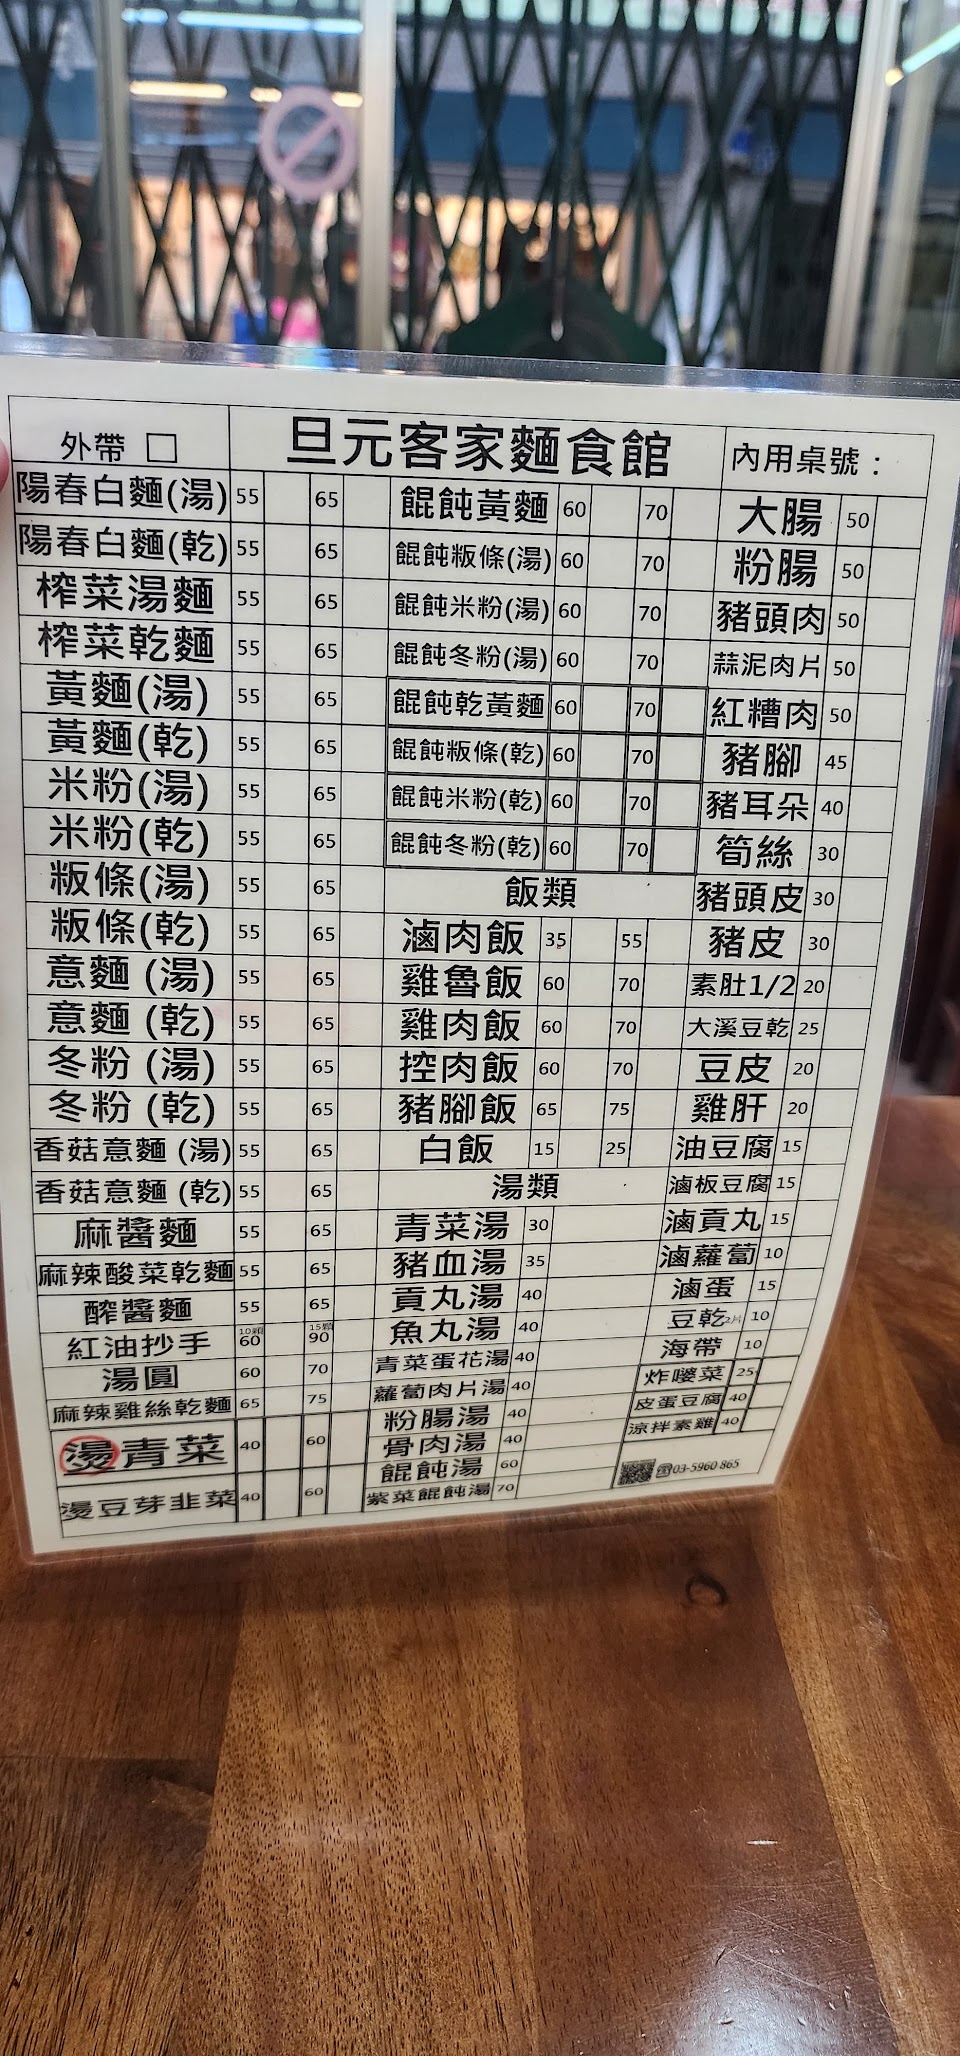 外帶 □
旦元客家麵食館
內用桌號：
陽春白麵(湯) 55 65
陽春白麵(乾) 55 65
榨菜湯麵 55 65
榨菜乾麵 55 65
黃麵(湯) 55 65
黃麵(乾) 55 65
米粉(湯) 55 65
米粉(乾) 55 65
粄條(湯) 55 65
粄條(乾) 55 65
意麵 (湯) 55 65
意麵 (乾) 55 65
冬粉 (湯) 55 65
冬粉 (乾) 55 65
香菇意麵 (湯) 55 65
香菇意麵 (乾) 55 65
麻醬麵 55 65
麻辣酸菜乾麵 55 65
醡醬麵 55 65
紅油抄手 10顆 60 15顆 90
湯圓 60 70
麻辣雞絲乾麵 65 75
燙青菜 40 60
燙豆芽韭菜 40 60
餛飩黃麵 60 70
餛飩粄條(湯) 60 70
餛飩米粉(湯) 60 70
餛飩冬粉(湯) 60 70
餛飩乾黃麵 60 70
餛飩粄條(乾) 60 70
餛飩米粉(乾) 60 70
餛飩冬粉(乾) 60 70
飯類
滷肉飯 35 55
雞魯飯 60 70
雞肉飯 60 70
控肉飯 60 70
豬腳飯 65 75
白飯 15 25
湯類
青菜湯 30
豬血湯 35
貢丸湯 40
魚丸湯 40
青菜蛋花湯 40
蘿蔔肉片湯 40
粉腸湯 40
骨肉湯 40
餛飩湯 60
紫菜餛飩湯 70
大腸 50
粉腸 50
豬頭肉 50
蒜泥肉片 50
紅糟肉 50
豬腳 45
豬耳朵 40
筍絲 30
豬頭皮 30
豬皮 30
素肚1/2 20
大溪豆乾 25
豆皮 20
雞肝 20
油豆腐 15
滷板豆腐 15
滷貢丸 15
滷蘿蔔 10
滷蛋 15
豆乾2片 10
海帶 10
炸嘜菜 25
皮蛋豆腐 40
涼拌素雞 40
☎03-5960 865